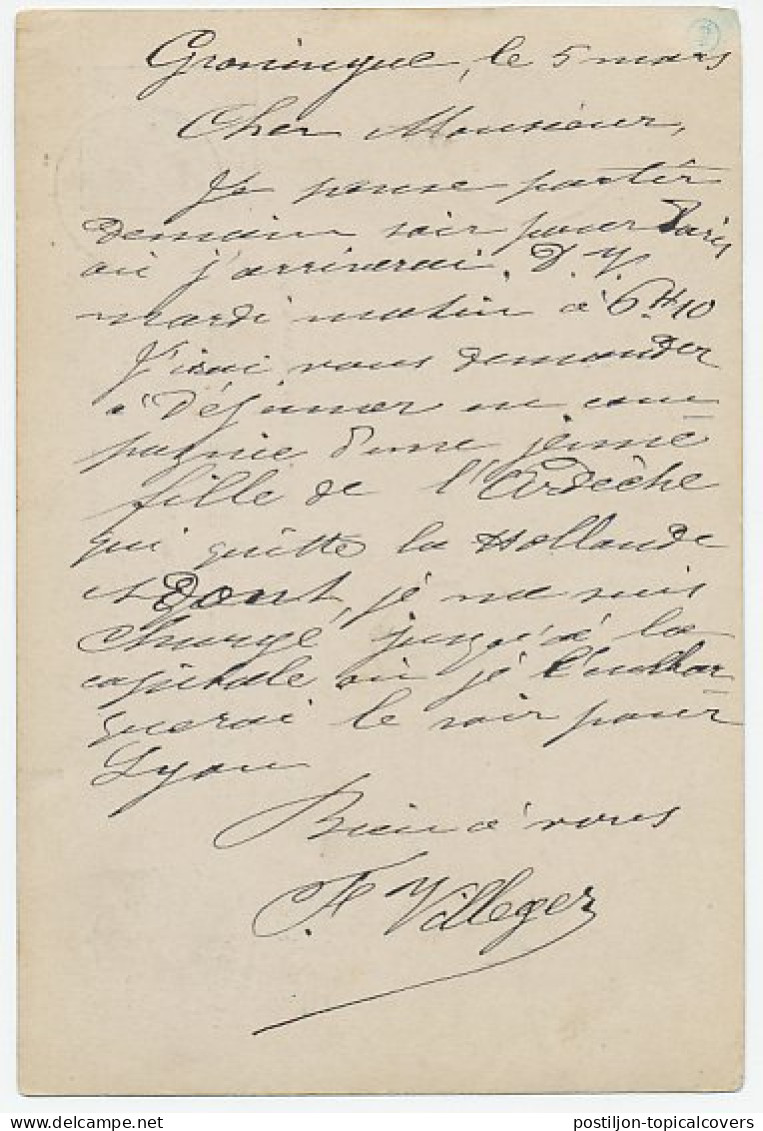 Groningue, le 5 mars
Cher Monsieur,
Je pense partir
demain soir pour Paris
où j'arriverai, D. V.
mardi matin à 6H10
J'irai vous demander
à déjeuner en com
pagnie d'une jeune
fille de l'Ardèche
qui quitte la Hollande
et dont je me suis
chargé jusqu'à la
capitale où je l'embar
querai le soir pour
Lyon
Bien à vous
F. Villeger
postiljon-topicalcovers